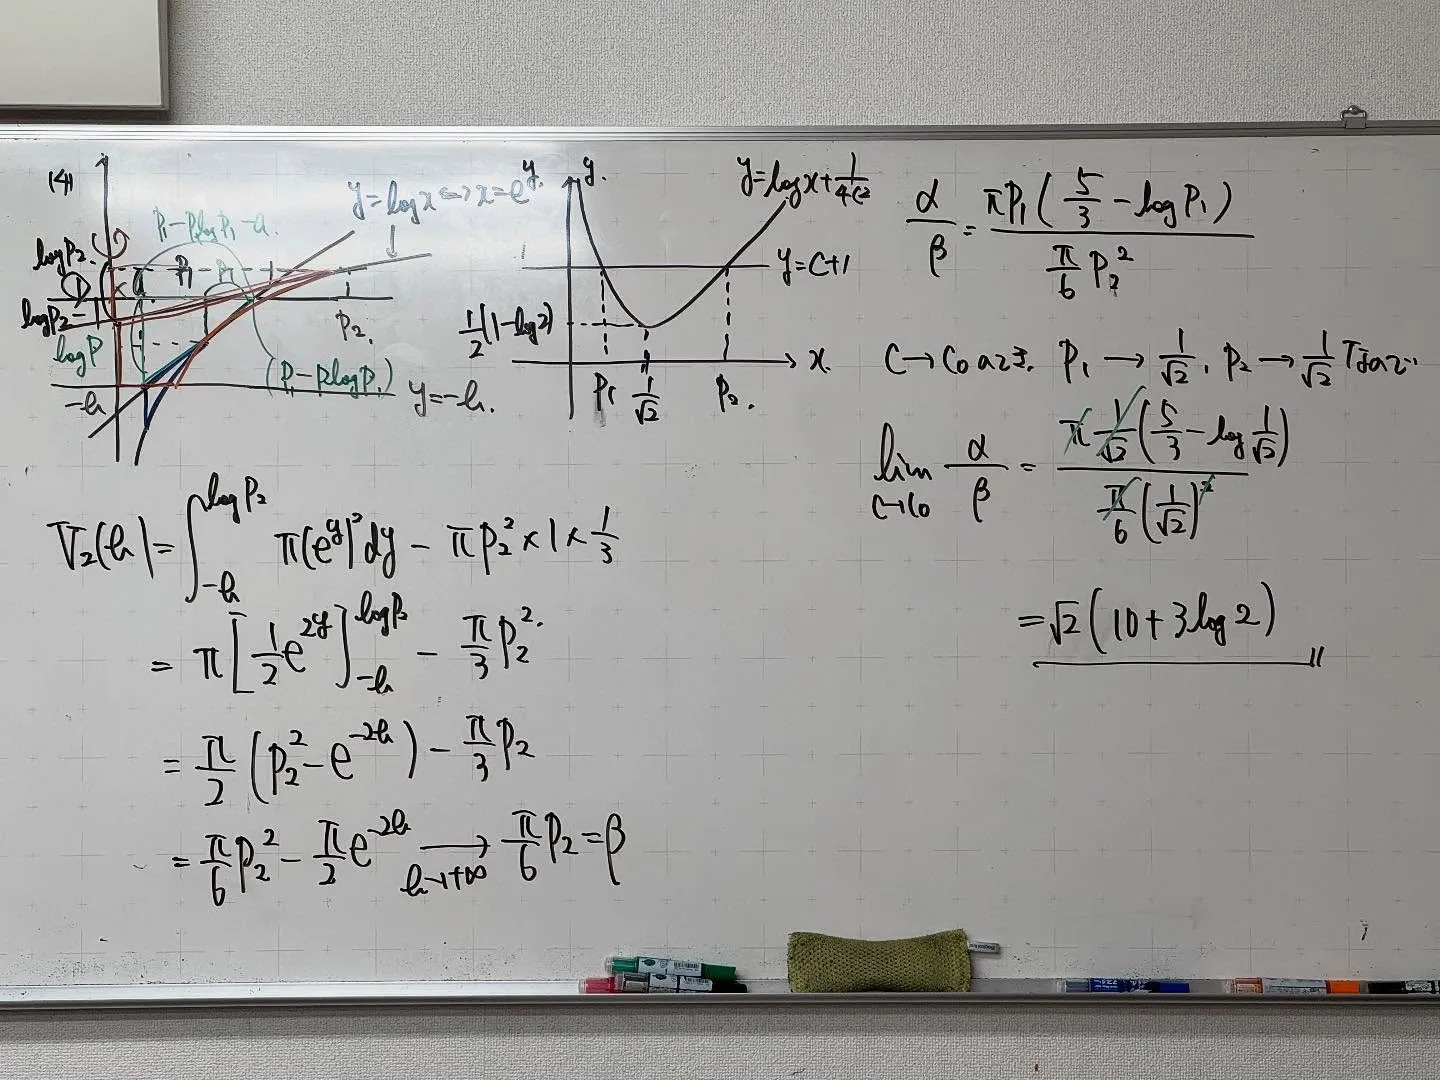 (4)
y=logx⇔x=e^y
P₁-P₁logP₁-a
logP₂
P₁
logP₂-1
P₂
logP
(P₁-P₁logP₁)
-h
y=-h
y
y=logx+1/4x²
y=C+1
1/2(1-log2)
x
P₁ 1/√2 P₂
V₂(h)=∫_{-h}^{logP₂} π(e^y)²dy-πP₂²×1×1/3
=π[1/2e^{2y}]_{-h}^{logP₂}-π/3P₂²
=π/2(P₂²-e^{-2h})-π/3P₂
=π/6P₂²-π/2e^{-2h} ⟶_{h→+∞} π/6P₂=β
α/β=πP₁(5/3-logP₁)/(π/6P₂²)
C→C₀のとき, P₁→1/√2, P₂→1/√2 なので
lim_{C→C₀} α/β=π1/√2(5/3-log1/√2)/(π/6(1/√2)²)
=√2(10+3log2)